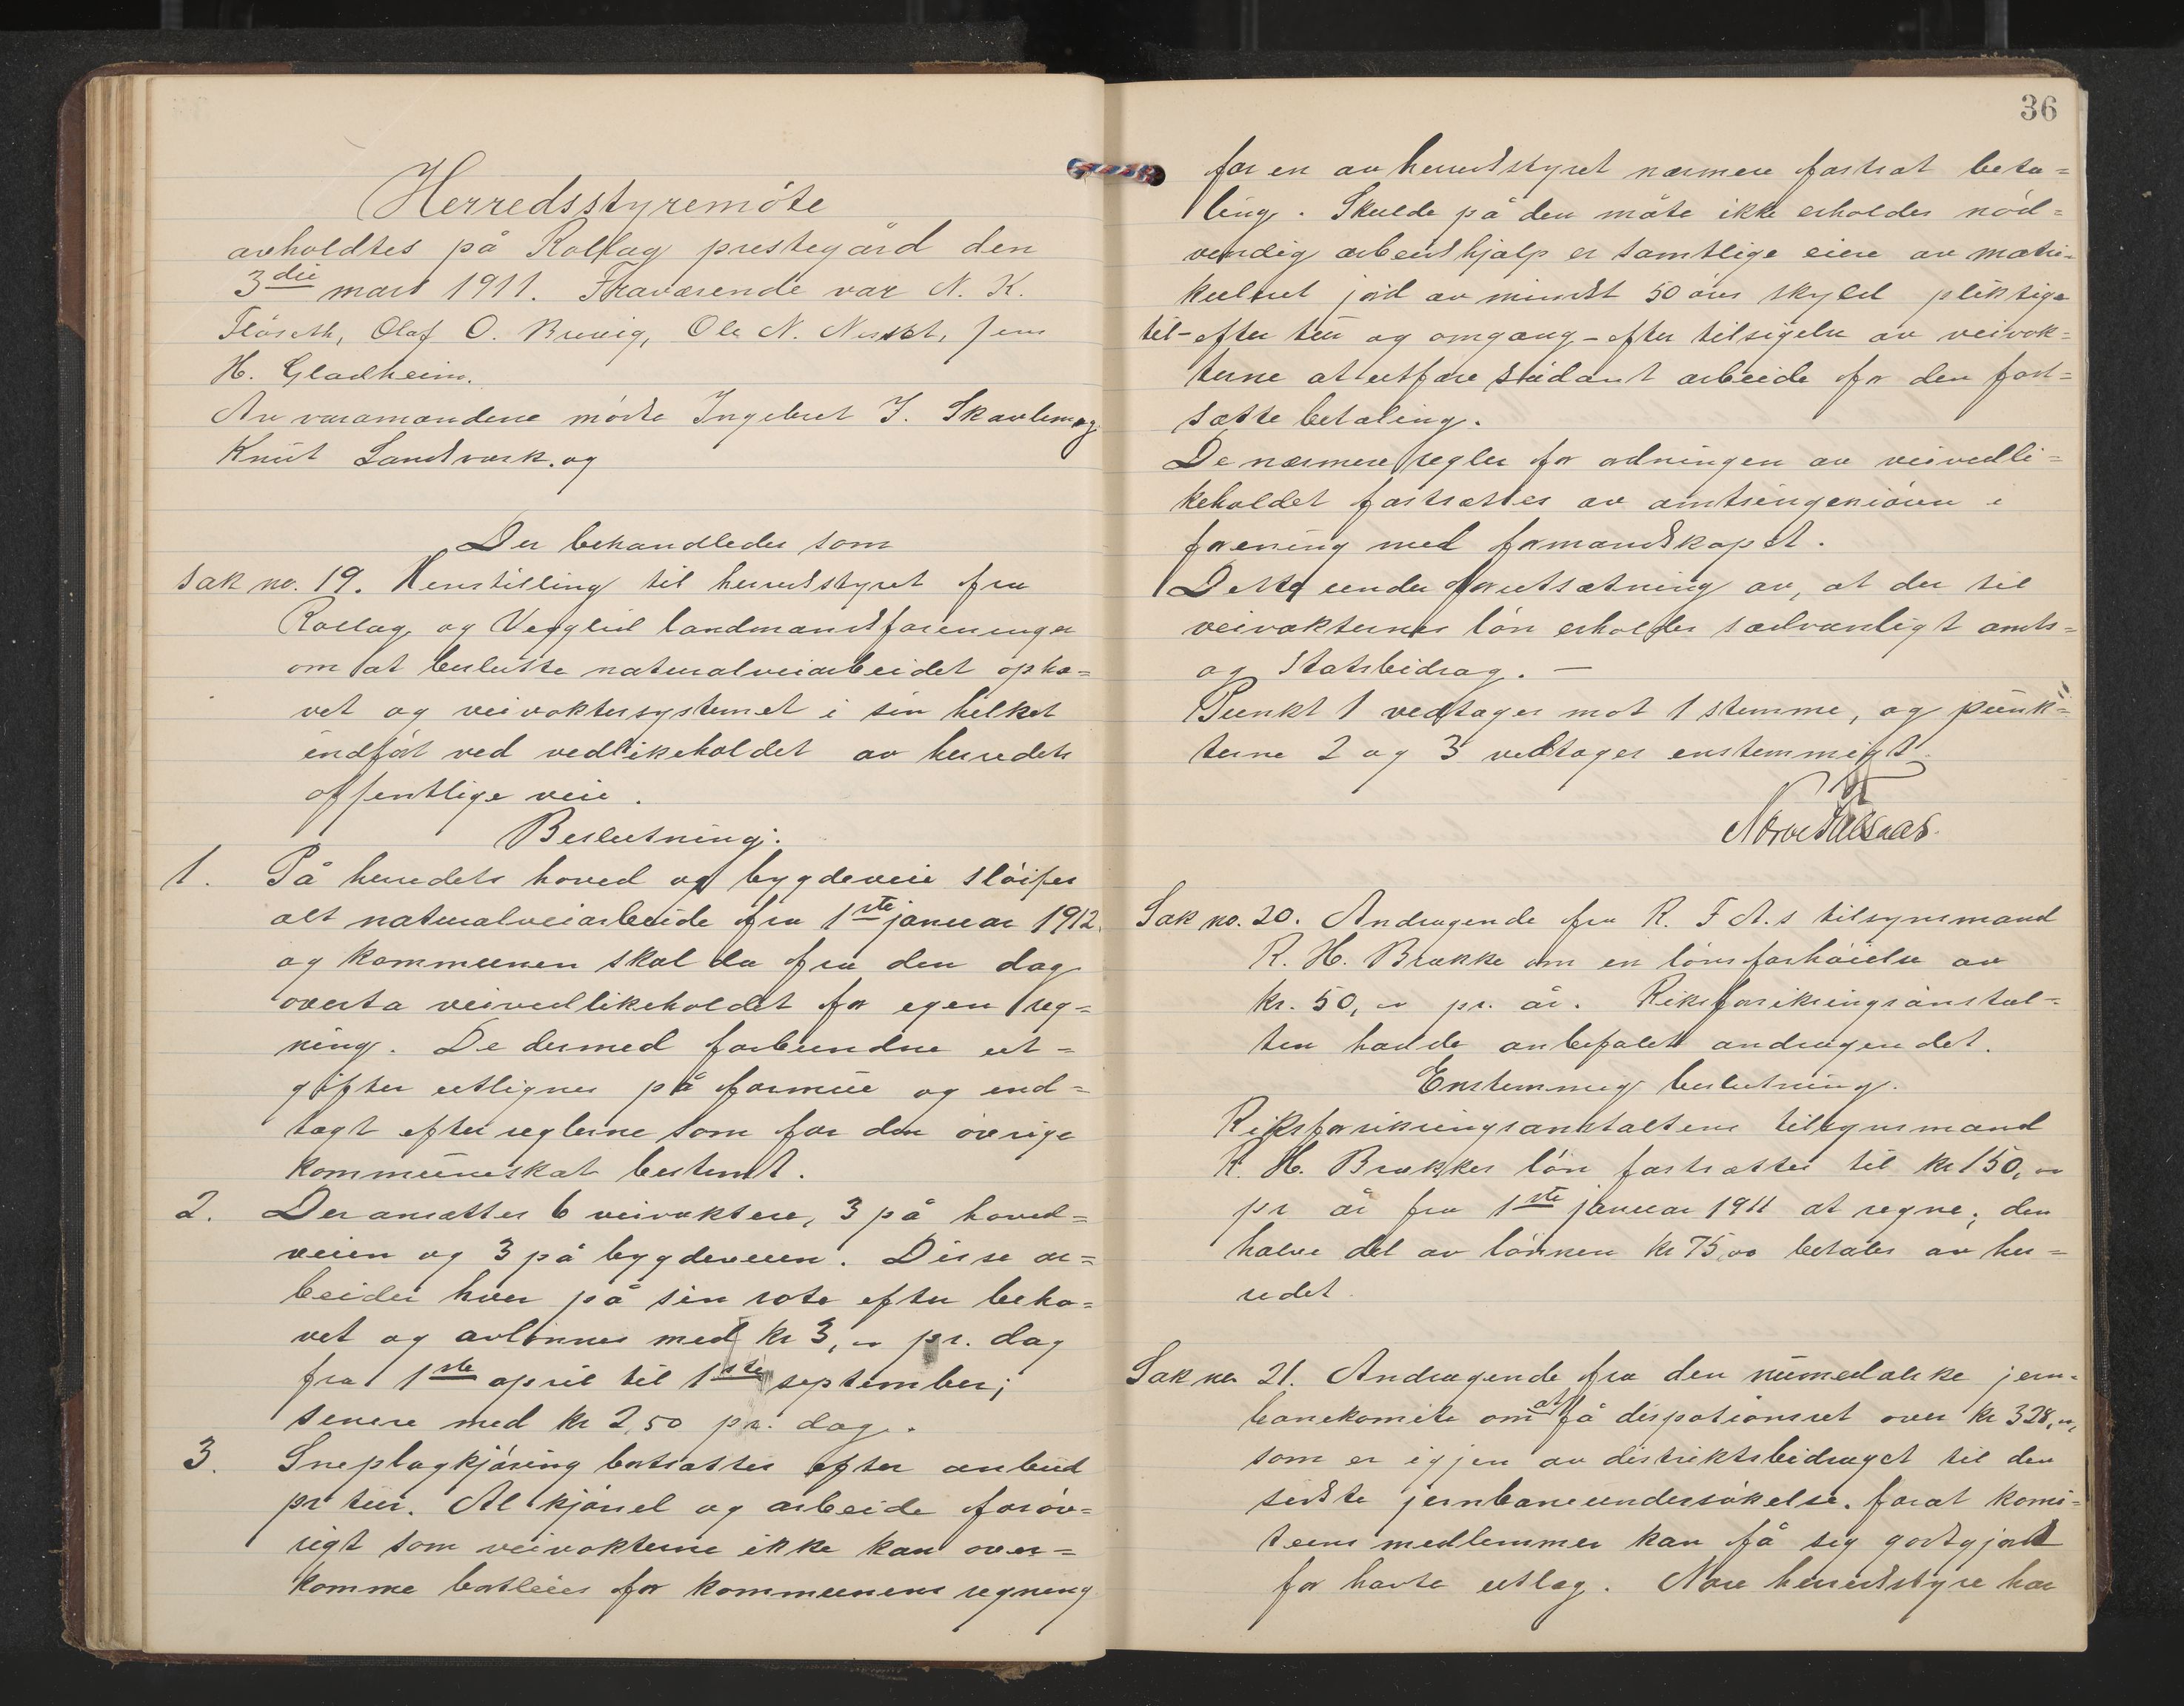 Herredsstyremöte
avholdtes på Rollag prestegård den
3die mars 1911. Fraværende var N. K.
Flåseth, Olaf O. Bruvig, Ole N. Jens
H. Gladheim.
Av varamændene møtte Ingebret J. Skavlem og
Knut Landsverk. og
Der behandledes som
Sak no. 19. Henstilling til herredsstyret fra
Rollag og Veglid landmandsforeninger
om at beslutte naturalveiarbeidet ophæ=
vet og veivoktersystemet i sin helhet
indført ved vedlikeholdet av herredets
offentlige veie.
Beslutning:
1. På herredets hoved og bygdeveie sløifes
alt naturalveiarbeide fra 1ste januar 1912.
og kommunen skal da fra den dag
overta veivedlikeholdet for egen reg=
ning. De dermed forbundne ut=
gifter utlignes på formue og ind=
tægt efter reglerne som for den øvrige
kommuneskat bestemt.
2. Der ansættes 6 veivoktere, 3 på hoved=
veien og 3 på bygdeveien. Disse ar=
beider hver på sin rote efter beho=
vet og avlønnes med kr 3,00 pr. dag
fra 1ste april til 1ste september;
senere med kr 2,50 pr. dag.
3. Sneplogkjøring bortsættes efter anbud
pr tur. Al kjørsel og arbeide forøv=
rigt som veivokterne ikke kan over=
komme bortleies for kommunens regning
36
for en av herredsstyret nærmere fastsat beta=
ling. Skulde på den måte ikke erholdes nød=
vendig arbeidshjælp er samtlige eiere av matri=
kuleret jord av mindst 50 øres skyld pliktige
til - efter tur og omgang - efter tilsigelse av veivok=
terne at utføre sådant arbeide for den fast=
satte betaling.
De nærmere regler for ordningen av veivedli=
keholdet fastsættes av amtsingeniøren i
forening med formandskapet.
Dette under forutsætning av, at der til
veivokternes løn erholdes sædvanligt amts=
og Statsbidrag. —
Punkt 1 vedtages mot 1 stemme, og punk=
terne 2 og 3 vedtages enstemmigt.
Sak no. 20. Andragende fra R. F A.s tilsynsmand
R. H. Brække om en lønsforhøielse av
kr. 50,00 pr. år. Riksforsikringsanstal=
ten havde anbefalet andragendet.
Enstemmig beslutning.
Riksforsikringsanstaltens tilsynsmand
R. H. Brækkes løn fastsættes til kr 150,00
pr år fra 1ste januar 1911 at regne; den
halve del av lønnen kr 75,00 betales av her=
redet.
Sak no 21. Andragende fra den numedalske jern=
banekomite om at få dispotionsret over kr 328,00,
som er igjen av distriktsbidraget til den
sidste jernbaneundersøkelse. forat komi=
teens medlemmer kan få sig godtgjort
for havte utlæg. Nore herredsstyre har